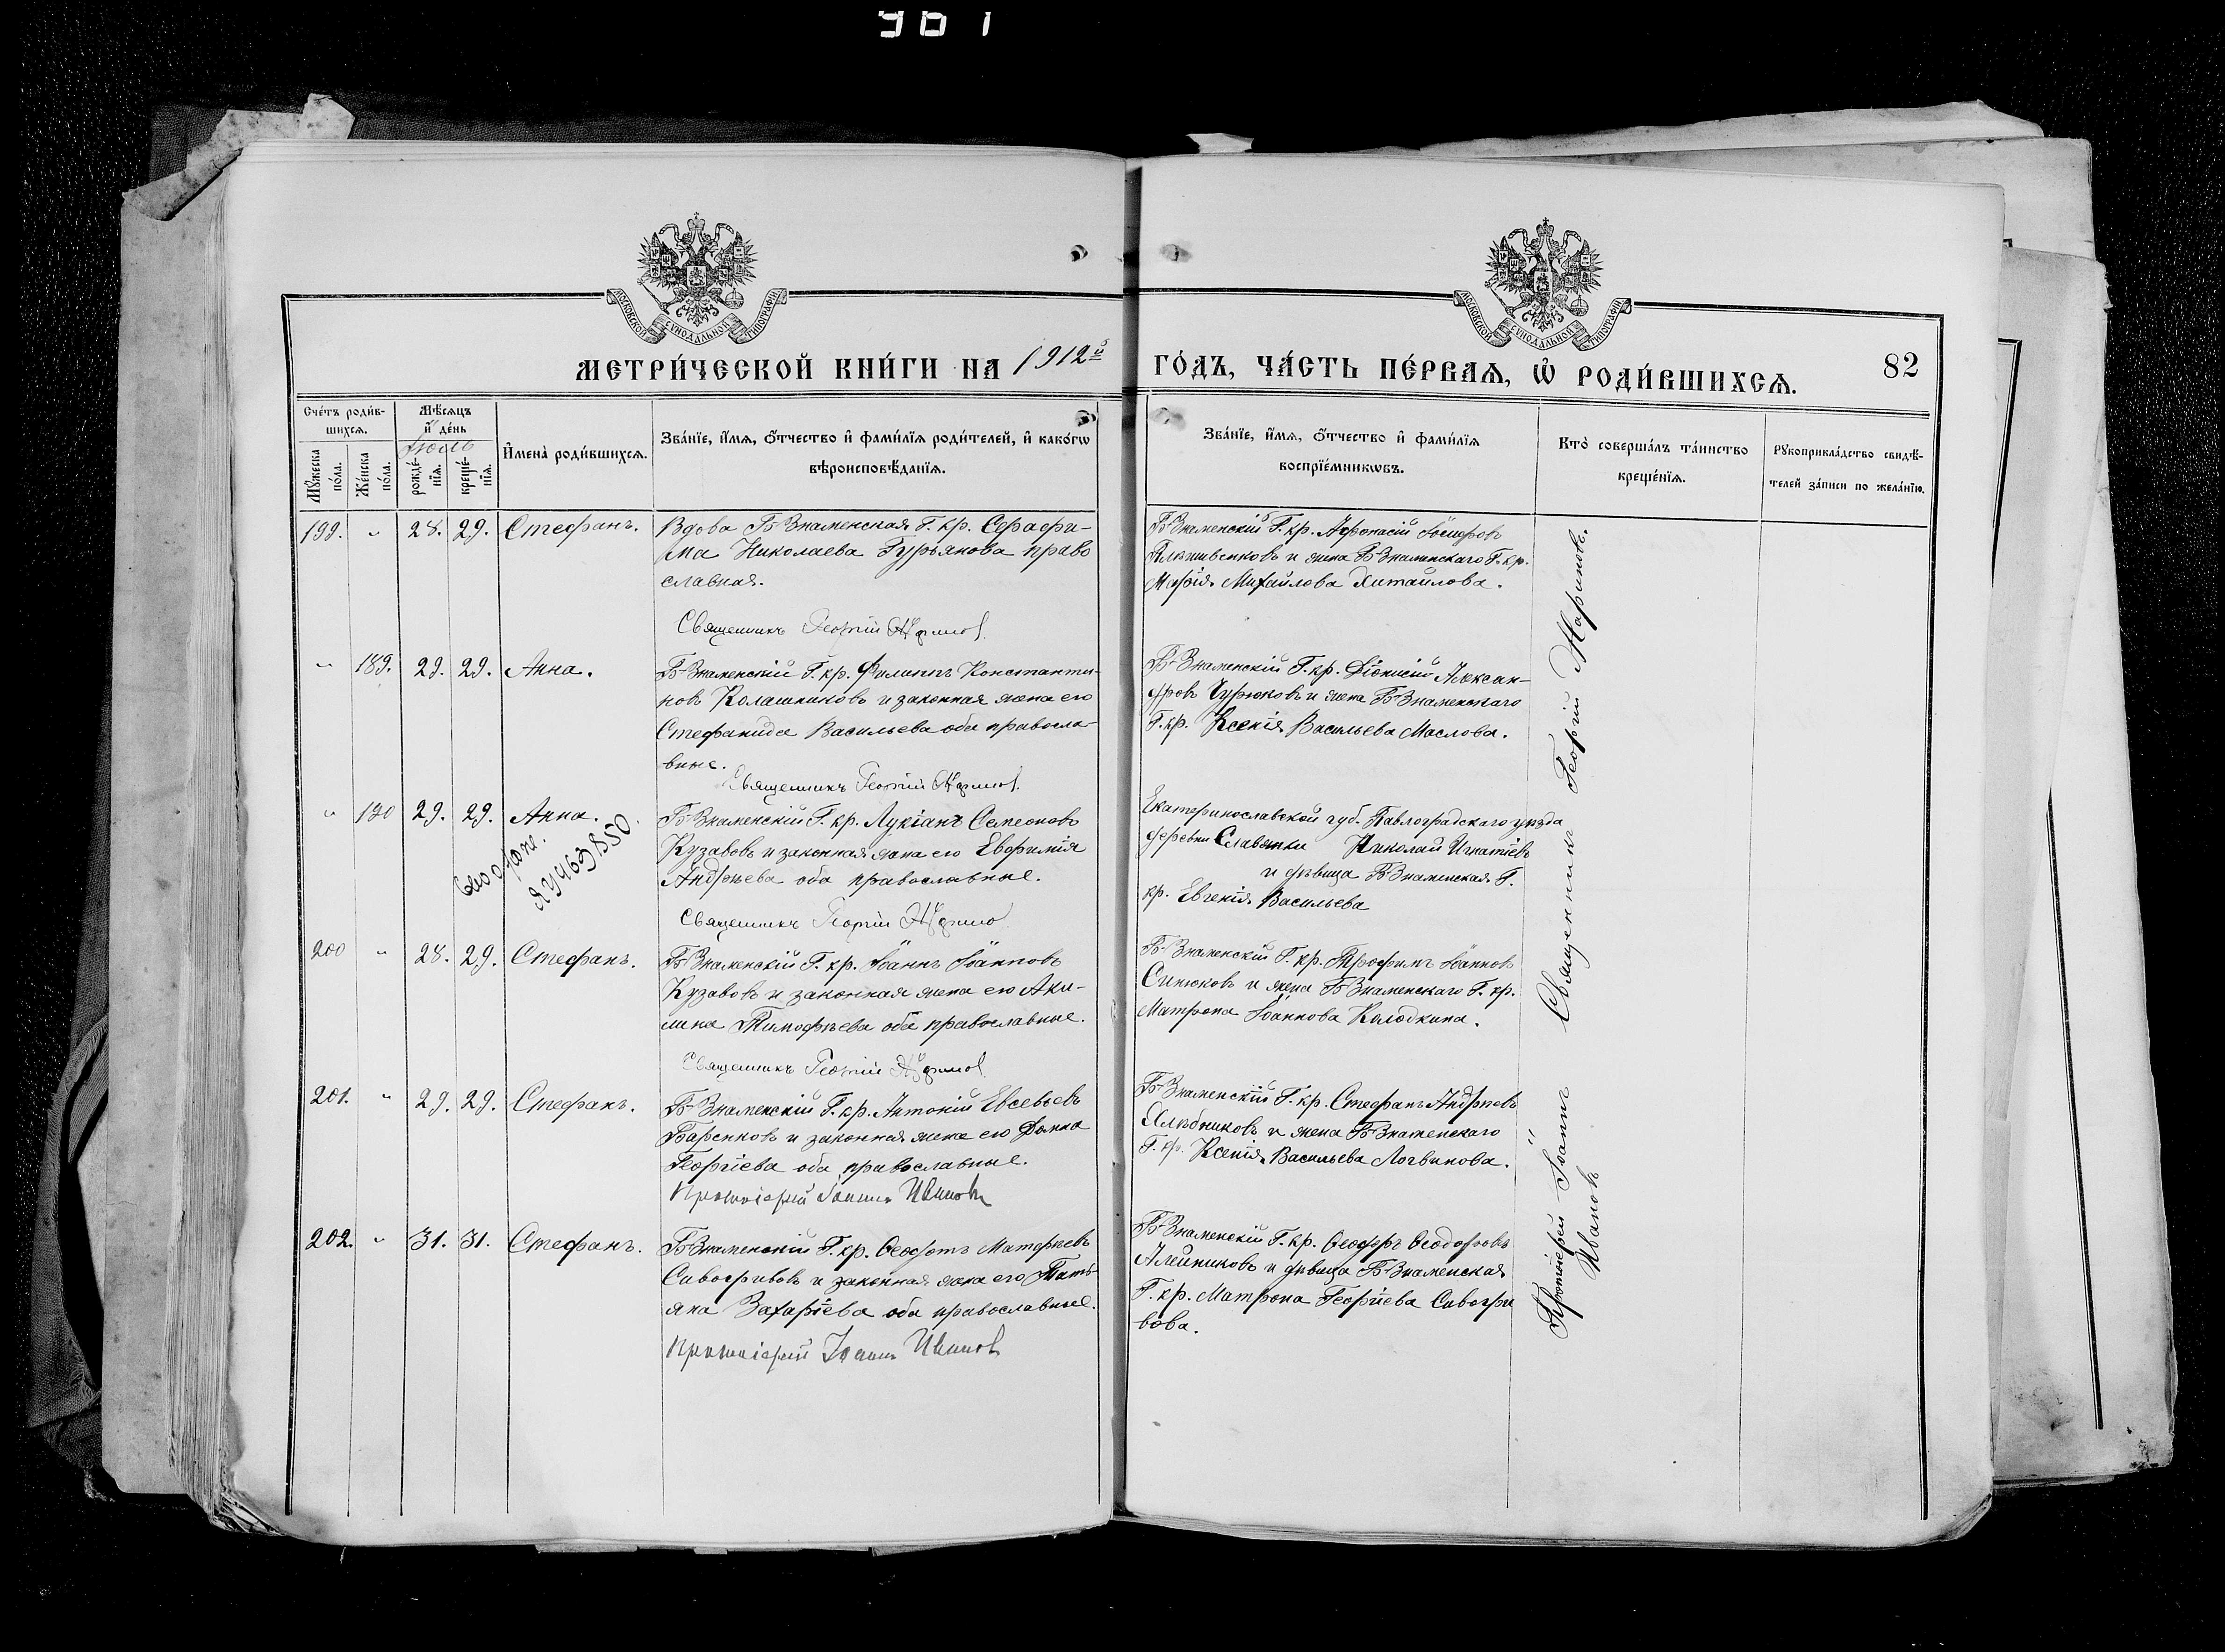 301
МОСКОВСКОЙ СѴНОДАЛЬНОЙ ТИПОГРАФІИ
МОСКОВСКОЙ СѴНОДАЛЬНОЙ ТИПОГРАФІИ
МЕТРИ́ЧЕСКОЙ КНИ́ГИ НА 1912й ГО́ДЪ, ЧА́СТЬ ПЕ́РВАЯ, Ѡ РОДИ́ВШИХСЯ.
82
Сче́тъ роди́в-
шихся.
Мѣ́сяцъ
и҆ де́нь
Іюль
Мꙋ́жеска по́ла.
Же́нска по́ла.
рожде́-
нїя.
креще́-
нїя.
И҆мена̀ роди́вшихся.
Зва́нїе, и҆́мя, ѻ҆́тчество и҆ фами́лїя роди́телей, и҆ како́гѡ
вѣроисповѣ́данїя.
Зва́нїе, и҆́мя, ѻ҆́тчество и҆ фами́лїя
воспрїе́мникѡвъ.
Кто̀ соверша́лъ та́инство
креще́нїя.
Рꙋкоприкла́дство свидѣ́-
телей за́писи по жела́нїю.
199. " 28. 29. Стефанъ.
Вдова Б-Знаменская Г. кр. Серафи-
ма Николаева Гурьянова право
славная.
Священникъ Георгій
Б-Знаменскій Г. кр. Афонасій Іосифовъ
и жена Б-Знаменскаго Г. кр.
Марія Михайлова
" 189. 29. 29. Анна.
Б-Знаменскій Г. кр. Филиппъ Константи-
новъ Колашниковъ и законная жена его
Стефанида Васильева оба правосла-
вные.
Священникъ Георгій
Б-Знаменскій Г. кр. Діонисій Алексан-
дровъ Чурюковъ и жена Б-Знаменскаго
Г. кр. Ксенія Васильева Маслова.
" 190 29. 29. Анна.
ЯУ463,850
Б-Знаменскій Г. кр. Лукіанъ Семеоновъ
Кузавовъ и законная жена его Евфимія
Андреева оба православные.
Священникъ Георгій
Екатеринославской губ. Павлоградскаго уезда
деревни Славянки Николай Игнатіевъ
и девица Б-Знаменская Г.
кр. Евгенія Васильева
200 " 28. 29. Стефанъ.
Б-Знаменскій Г. кр. Іоаннъ Іоанновъ
Кузавовъ и законная жена его Аки-
лина Тимофеева оба православные.
Священникъ Георгій
Б-Знаменскій Г. кр. Трофимъ Іоанновъ
Синюковъ и жена Б-Знаменскаго Г. кр.
Матрона Іоаннова Колодкина.
201. " 29. 29. Стефанъ.
Б-Знаменскій Г. кр. Антоній Евсевьевъ
Баренковъ и законная жена его Домна
Георгіева оба православные.
Протоіерей Іоаннъ Ивановъ
Б-Знаменскій Г. кр. Стефанъ Андреевъ
Хлебниковъ и жена Б-Знаменскаго
Г. кр. Ксенія Васильева Логвинова.
202. " 31. 31. Стефанъ.
Б-Знаменскій Г. кр. Ѳеофотъ Матфеевъ
Сивогривовъ и законная жена его Тать-
яна Захаріева оба православные.
Протоіерей Іоаннъ Ивановъ
Б-Знаменскій Г. кр. Ѳеодоръ Ѳеодоровъ
Алейниковъ и девица Б-Знаменская
Г. кр. Матрона Георгіева Сивогри
вова.
Священникъ Георгій
Протоіерей Іоаннъ
Ивановъ